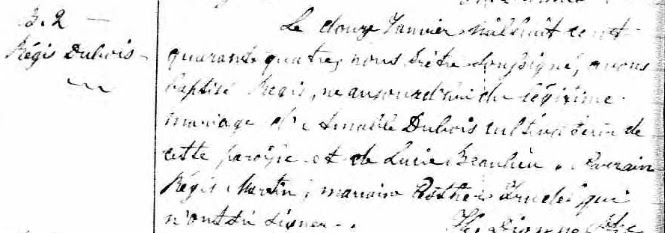 B. 2
Régis Dubois
Le douze Janvier mil huit cent
quarante quatre, nous prêtre soussigné, avons
baptisé Régis, né du légitime
mariage d'Amable Dubois cultivateur de
cette paroisse et de Lucie Beaulieu. Parrain
Régis Martin, marraine Esther qui
n'ont su signer.
Dionne Ptre